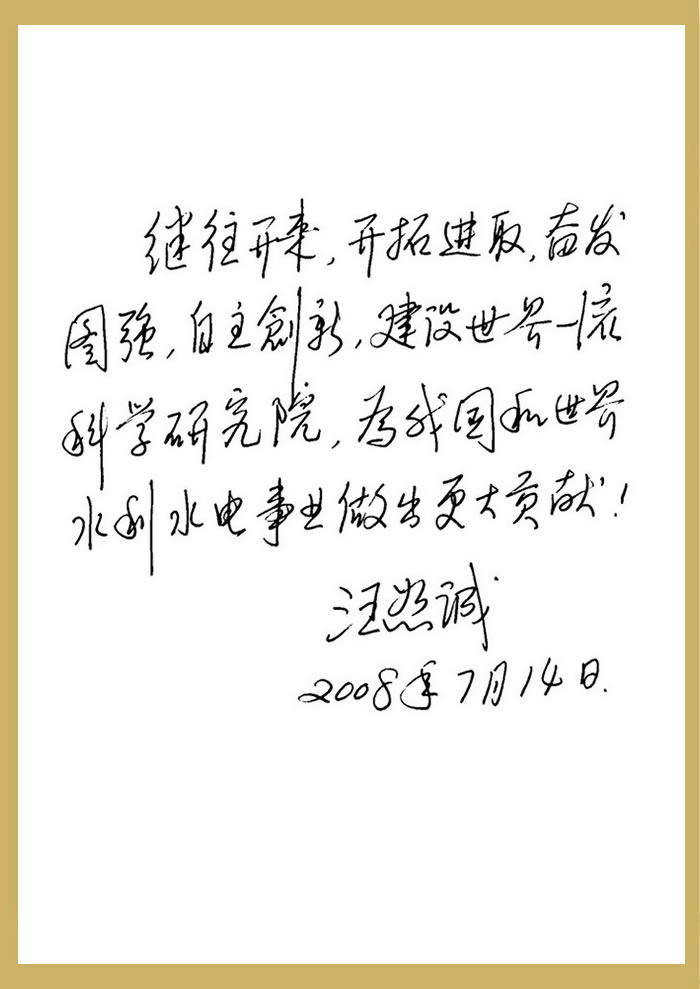 继往开来,开拓进取,奋发
图强,自主創新,建设世界一流
科学研究院,为我国和世界
水利水电事业做出更大贡献!
汪恕诚
2008年7月14日.